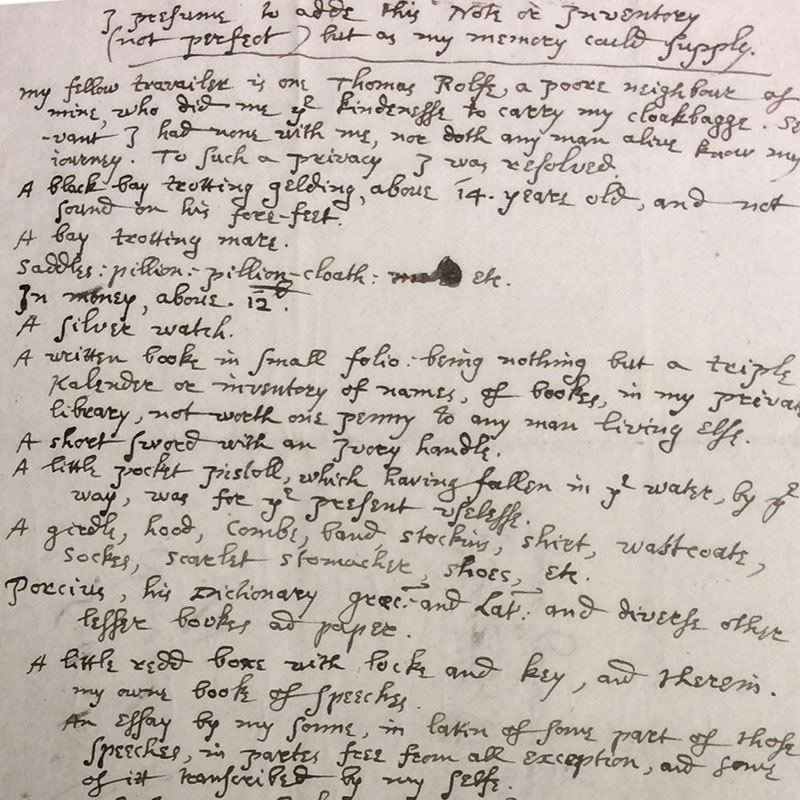 I presume to adde this Note or Inventory
(not perfect) but as my memory could supply.
my fellow travailer is one Thomas Rolfe, a poore neighbour of
mine, who did me yᵉ kindenesse to carry my cloakbagge. Se
-vant I had none with me, nor doth any man alive know my
iourney. To such a privacy I was resolved.
A black-bay trotting gelding, above 14. years old, and not
sound on his fore-feet.
A bay trotting mare.
Saddles: pillion: pillion-cloath: etc.
In money, above. 12ˡ.
A silver watch.
A written booke in small folio: being nothing but a triple
Kalender or inventory of names, of bookes, in my privat
library, not worth one penny to any man living else.
A short sword with an Ivory handle.
A little pocket pistoll, which having fallen in yᵉ water, by yᵉ
way, was for yᵉ present uselesse.
A girdle, hood, Combe, band stockins, shirt, wastcoate,
Sockes, scarlet stomacher, shoes, etc.
Porcius, his Dictionary græc: and Lat: and diverse other
lesser bookes ad paper.
A little redd boxe with locke and key, and therein.
my owne booke of speeches.
An essay by my sonne, in latin of some part of those
speeches, in partes free from all exception, and some
of itt transcribed by my selfe.